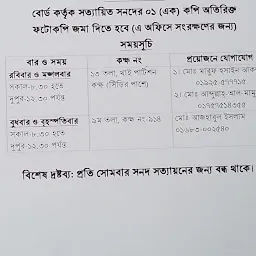 বোর্ড কর্তৃক সত্যায়িত সনদের ০১ (এক) কপি অতিরিক্ত
ফটোকপি জমা দিতে হবে (এ অফিসে সংরক্ষণের জন্য)
সময়সূচি
বার ও সময় কক্ষ নং প্রয়োজনে যোগাযোগ
রবিবার ও মঙ্গলবার ১৩ তলা, থাই পার্টিশন ১। মোঃ মারুফ হসাইন আক
সকাল-৮.৩০ হতে কক্ষ (সিঁড়ির পাশে)
দুপুর-১২.৩০ পর্যন্ত ২। মোঃ আব্দুল্লাহ-আল-মামু
বুধবার ও বৃহস্পতিবার ৯ম তলা, কক্ষ নং-৯১৪ মোঃ আজহারুল ইসলাম
সকাল-৮.৩০ হতে
দুপুর-১২.৩০ পর্যন্ত
বিশেষ দ্রষ্টব্য: প্রতি সোমবার সনদ সত্যায়নের জন্য বন্ধ থাকে।